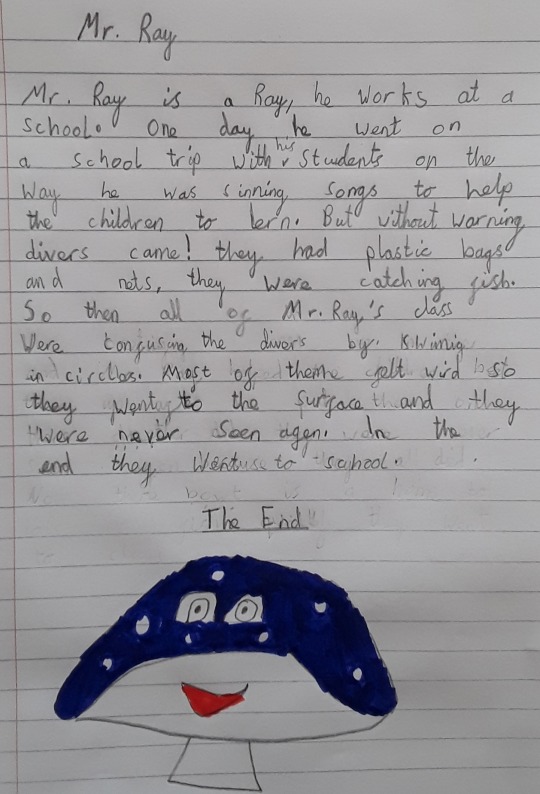 Mr. Ray
Mr. Ray is a Ray, he works at a
school. One day he went on
a school trip with his students on the
way he was sinning songs to help
the children to lern. But without warning
divers came! they had plastic bags
and nets, they were catching fish.
So then all of Mr. Ray's class
were confusing the divers by
in circles. Most of theme felt wird so
they went to the surface and they
were never seen agen. In the
end they went to school.
The End